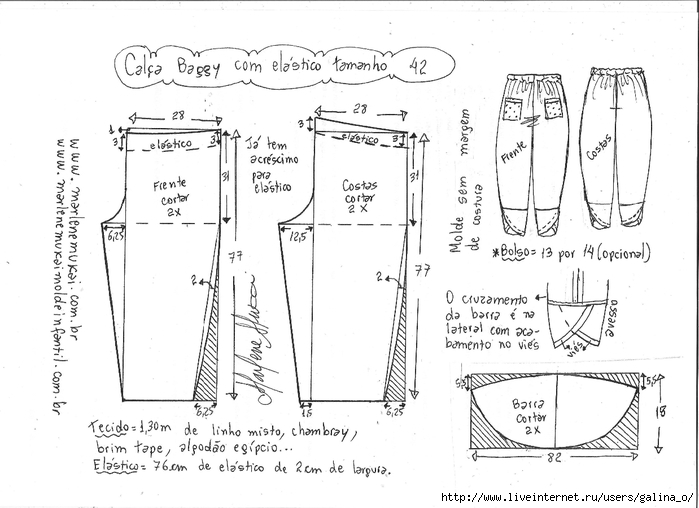 Calça Baggy com elástico tamanho 42
www.marlenemukai.com.br
www.marlenemukaimoldeinfantil.com.br
28
1
3
3
elástico
31
Frente
cortar
2X
6,25
77
2
6,25
Já tem
acréscimo
para
elástico
Marlene Mukai
28
3
3
elástico
31
Costas
cortar
2X
12,5
77
2
1,5
6,25
Molde sem margem
de costura
Frente
Costas
*Bolso= 13 por 14 (opcional)
O cruzamento
da barra é na
lateral com aca-
bamento no viés
avesso
viés
5,5
5,5
Barra
cortar
2X
18
82
Tecido= 1,30m de linho misto, chambray,
brim tape, algodão egípcio...
Elástico= 76cm de elástico de 2cm de largura.
http://www.liveinternet.ru/users/galina_o/